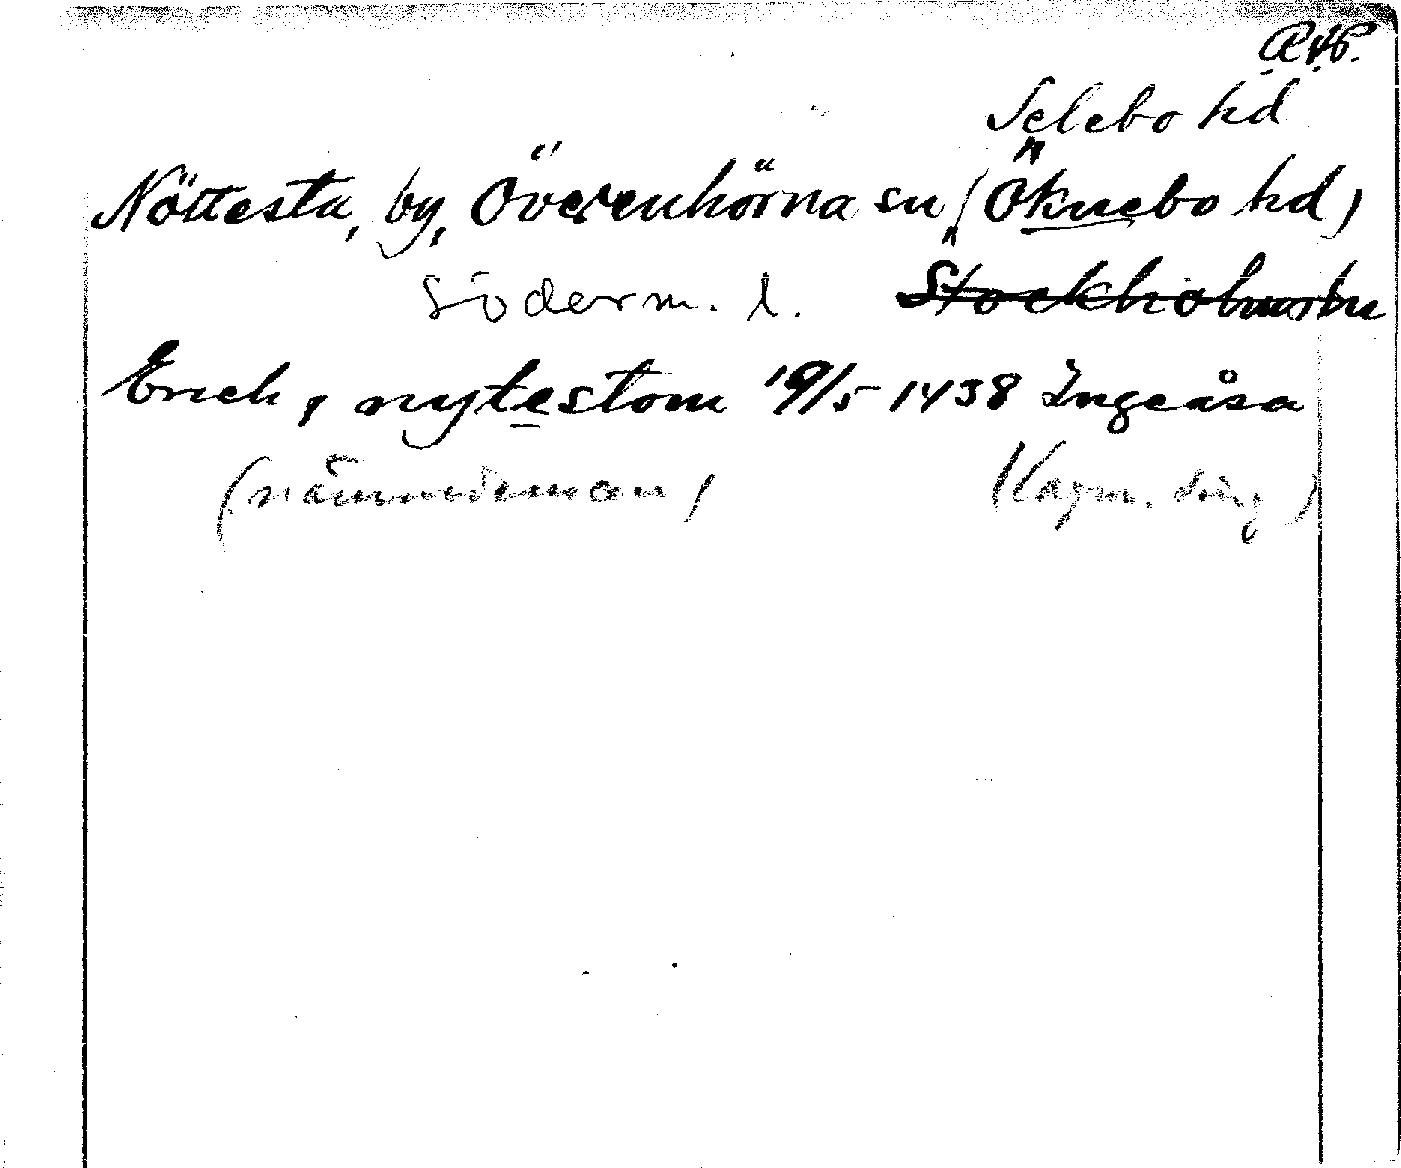 Selebo hd
Nöttesta, by, Överenhörna sn (Öknebo hd)
Söderm. l. Stockholms län
Erich, nytestom 19/5 1438 Ingeåsa
(nämndeman) (Kagm. ting)